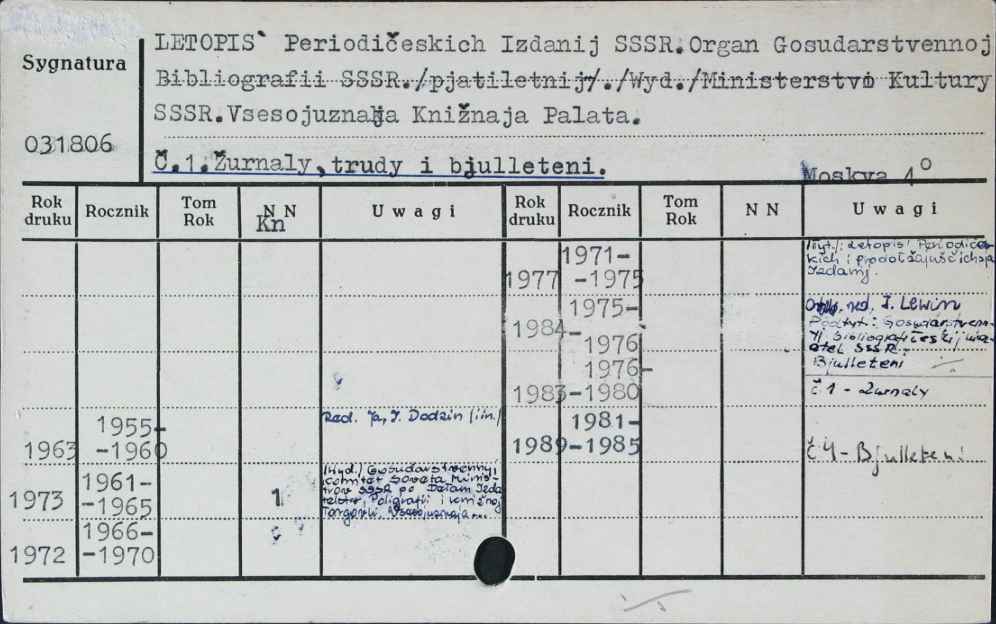 LETOPIS` Periodičeskich Izdanij SSSR.Organ Gosudarstvennoj
Sygnatura
Bibliografii SSSR./pjatiletnij/./Wyd./Ministerstvo Kultury
SSSR.Vsesojuznaja Knižnaja Palata.
031806
Č.1.Žurnaly,trudy i bjulleteni.
Moskva 4°
Rok druku Rocznik Tom Rok NN Uwagi Rok druku Rocznik Tom Rok NN Uwagi
Kn
1971-
1977 -1975
/tyt./: Letopis' Periodičes-
kich i prodolžajuščichsja
Izdanij.
1975-
1984- 1976
red. I. Lewin
Podtyt.: Gosudarstven-
SSSR.
Bjulleteni
1976-
1983-1980
č.1 - Žurnaly
1955-
1963 -1960
Red. Ja, I. Dodzin (i in.)
1981-
1989-1985
č.4-Bjulleteni
1961-
1973 -1965
1
(Wyd.) Gosudarstvennyj
Komitet Soveta Minis-
trov SSSR po Delam Izda
telstv, Poligrafii i Knižnoj
Torgovli. Vsesojuznaja...
1966-
1972 -1970